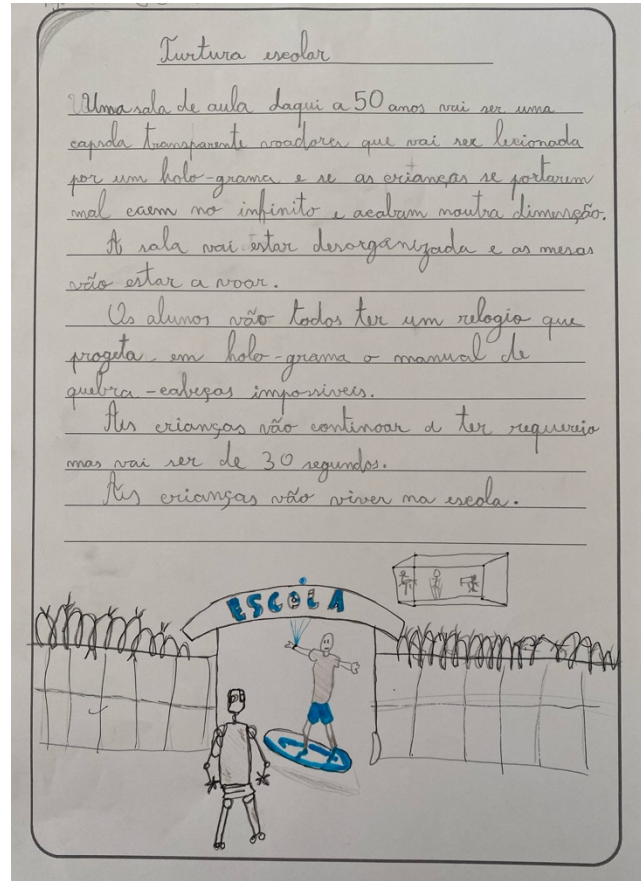 Turtura escolar
Uma sala de aula daqui a 50 anos vai ser uma
capsola transparente voadores que vai ser lecionada
por um holo-grama e se as crianças se portarem
mal caem no infinito e acabam noutra dimenção.
A sala vai estar desorganizada e as mesas
vão estar a voar.
Os alunos vão todos ter um relogio que
progeta em holo-grama o manual de
quebra-cabeças impossiveis.
As crianças vão continoar a ter requereio
mas vai ser de 30 segundos.
As crianças vão viver na escola.
ESCOLA